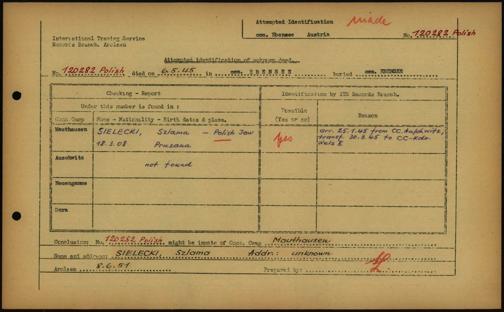 Attempted Identification made
conc. Ebensee Austria
No. 120282 Polish
International Tracing Service
Records Branch, Arolsen
Attempted identification of unknown dead.
No. 120282 Polish died on 6.5.45 in conc. EBENSEE buried cem. EBENSEE
Checking - Report
Identification by ITS Records Branch.
Under this number is found in :
Possible
(Yes or no)
Reason
Conc. Camp Name - Nationality - Birth dates & place.
Mauthausen SIELECKI, Szlama - Polish Jew
18.3.08 Pruzana
yes
arr. 25.1.45 from CC. Auschwitz,
transf. 20.3.45 to CC-Kdo.
Wels II
Auschwitz
not found
Neuengamme
Dora
Conclusion: No. 120282 Polish might be inmate of Conc. Camp Mauthausen
Name and address: SIELECKI, Szlama Addr: unknown
Arolsen 8.6.51 Prepared by: